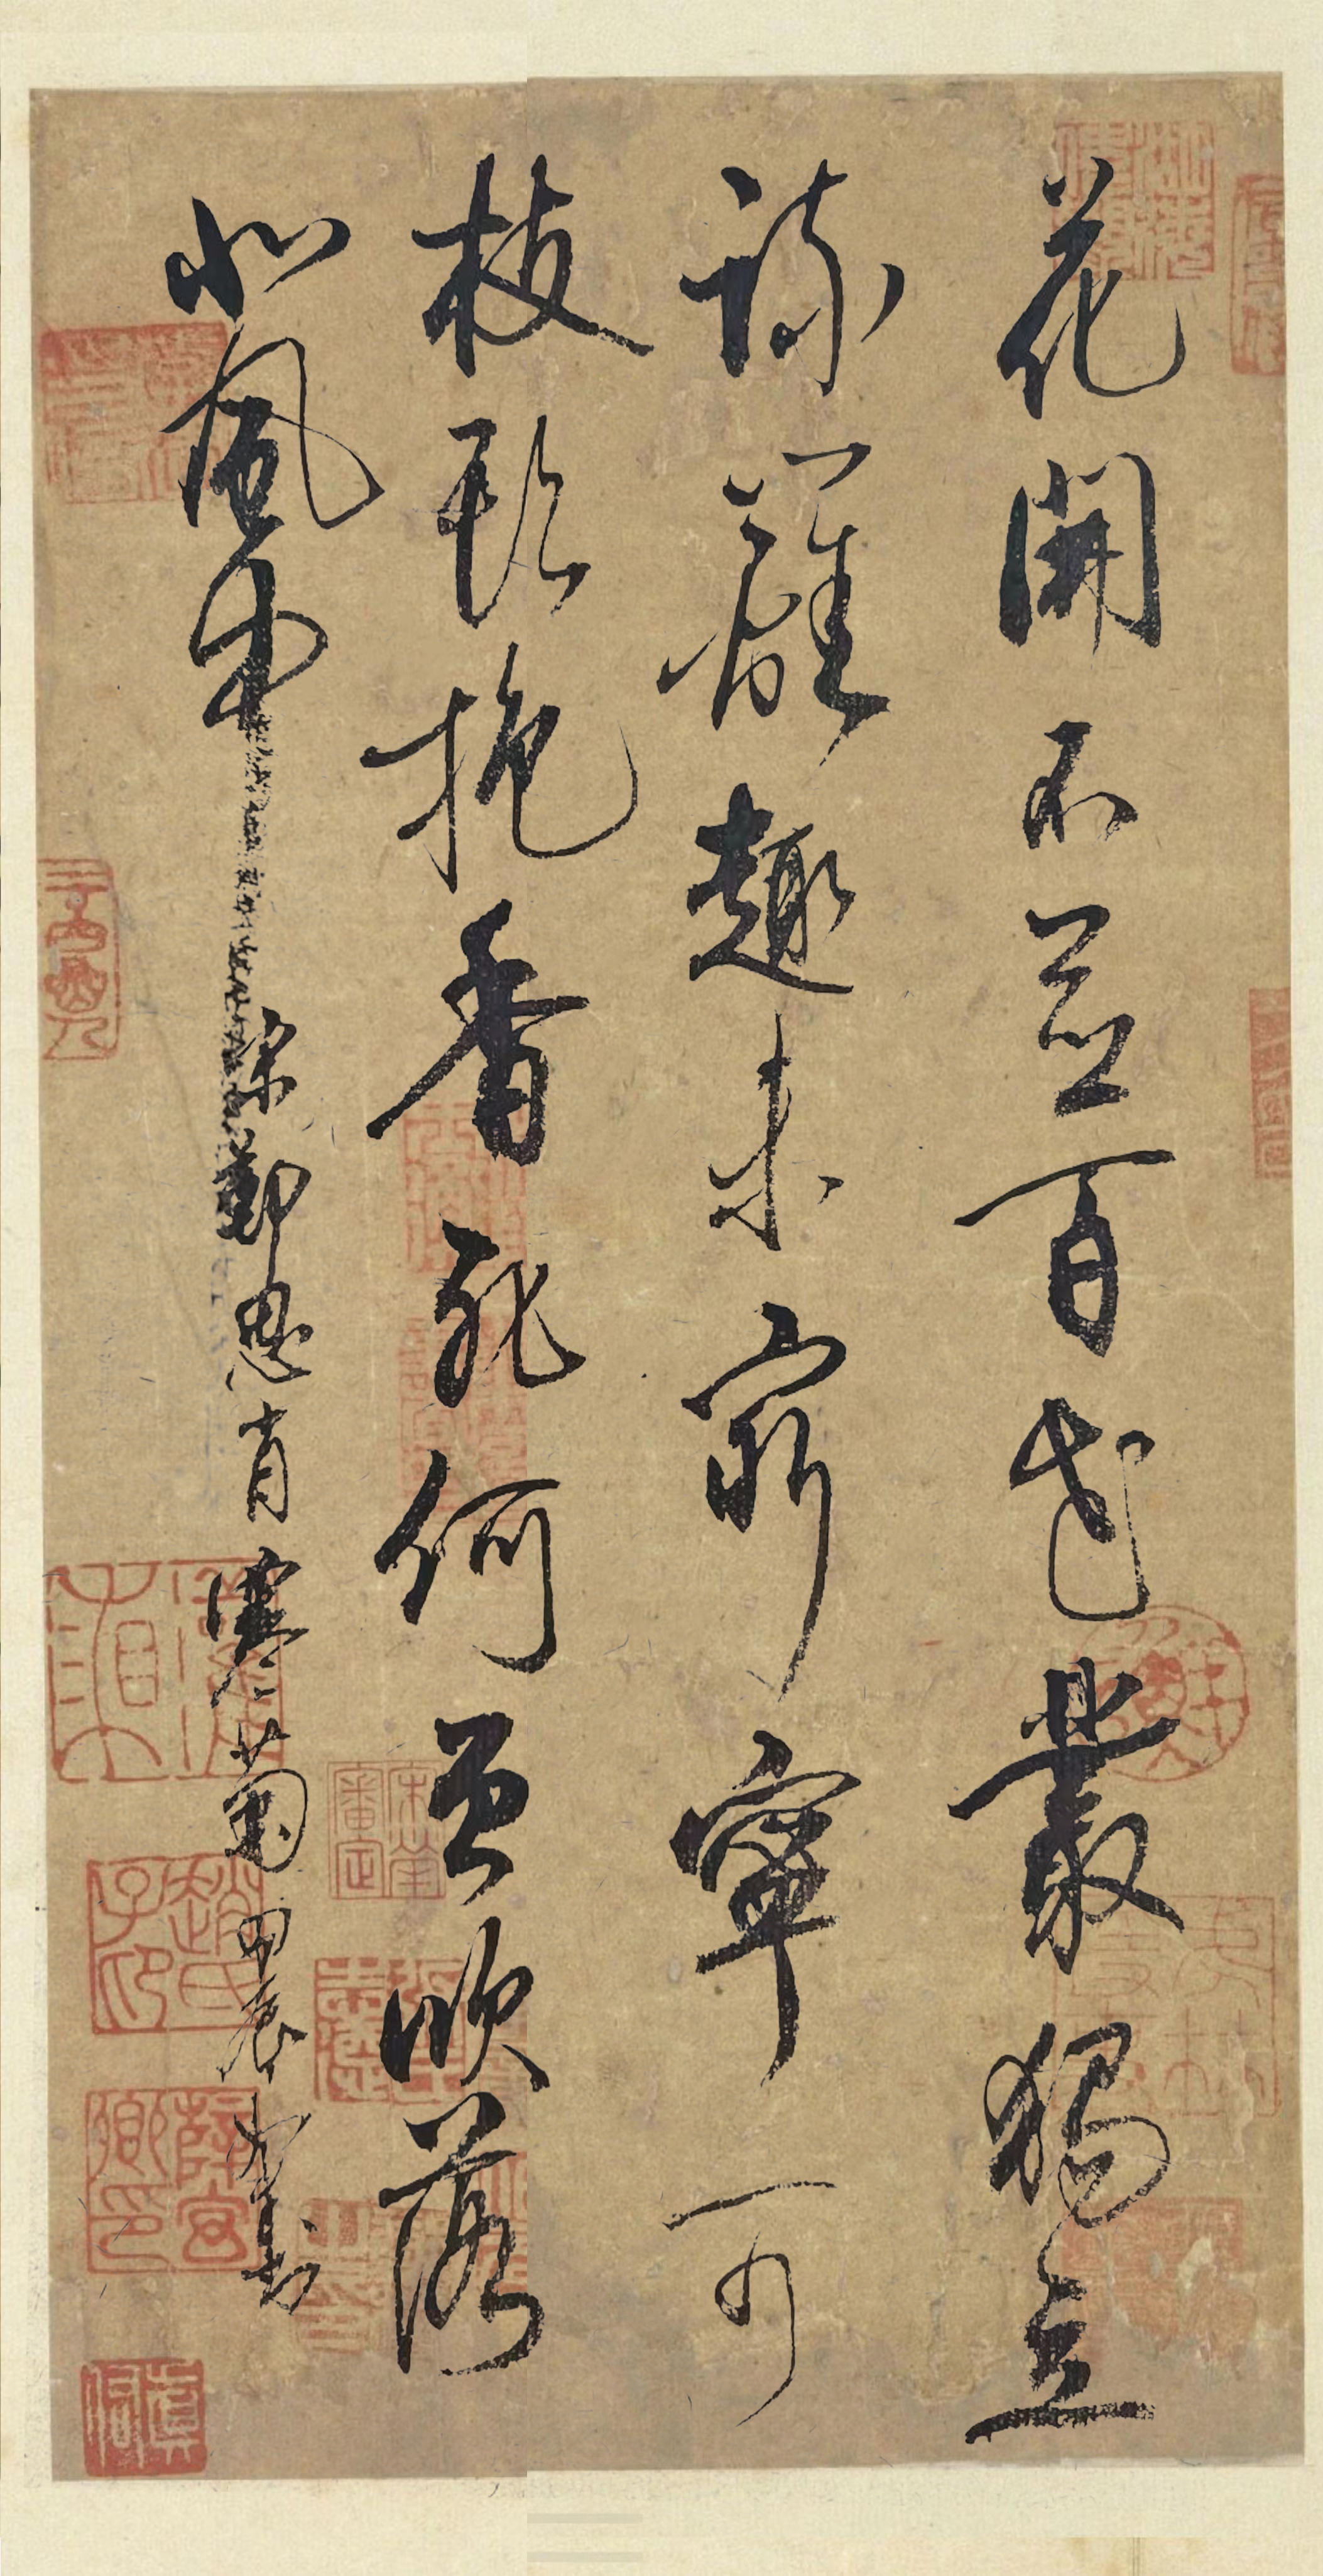 花開不並百花叢獨立
疏籬趣未窮寧可
枝頭抱香死何曾吹落
北風中
宋鄭思肖寒菊 甲辰 書
宋犖審定